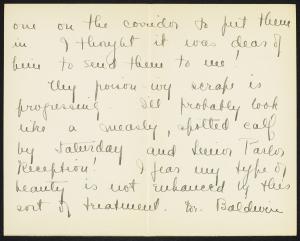 one on the corridor to put them
in. I thought it was dear of
him to send them to me!
My poison-ivy scrape is
progressing. I'll probably look
like a measly, spotted calf
by Saturday and Senior Parlor
Reception! I fear my type of
beauty is not enhanced by this
sort of treatment. Dr. Baldwin